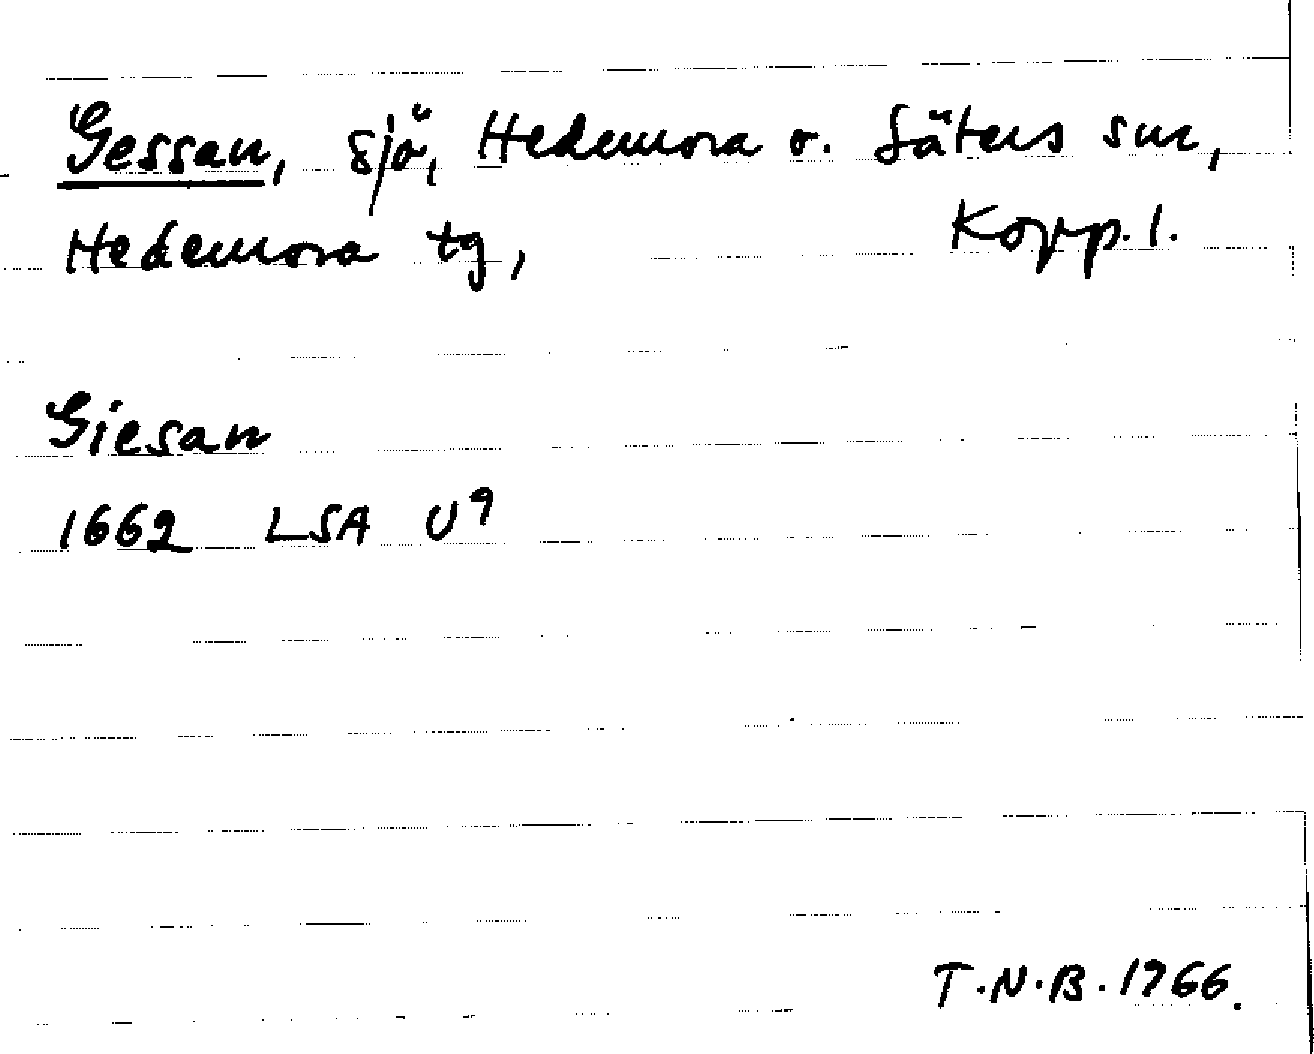 Gessan, sjö, Hedemora o. Säters snr,
Hedemora tg, Kopp. l.
Giesan
1662 LSA U9
T.N.B. 1966.